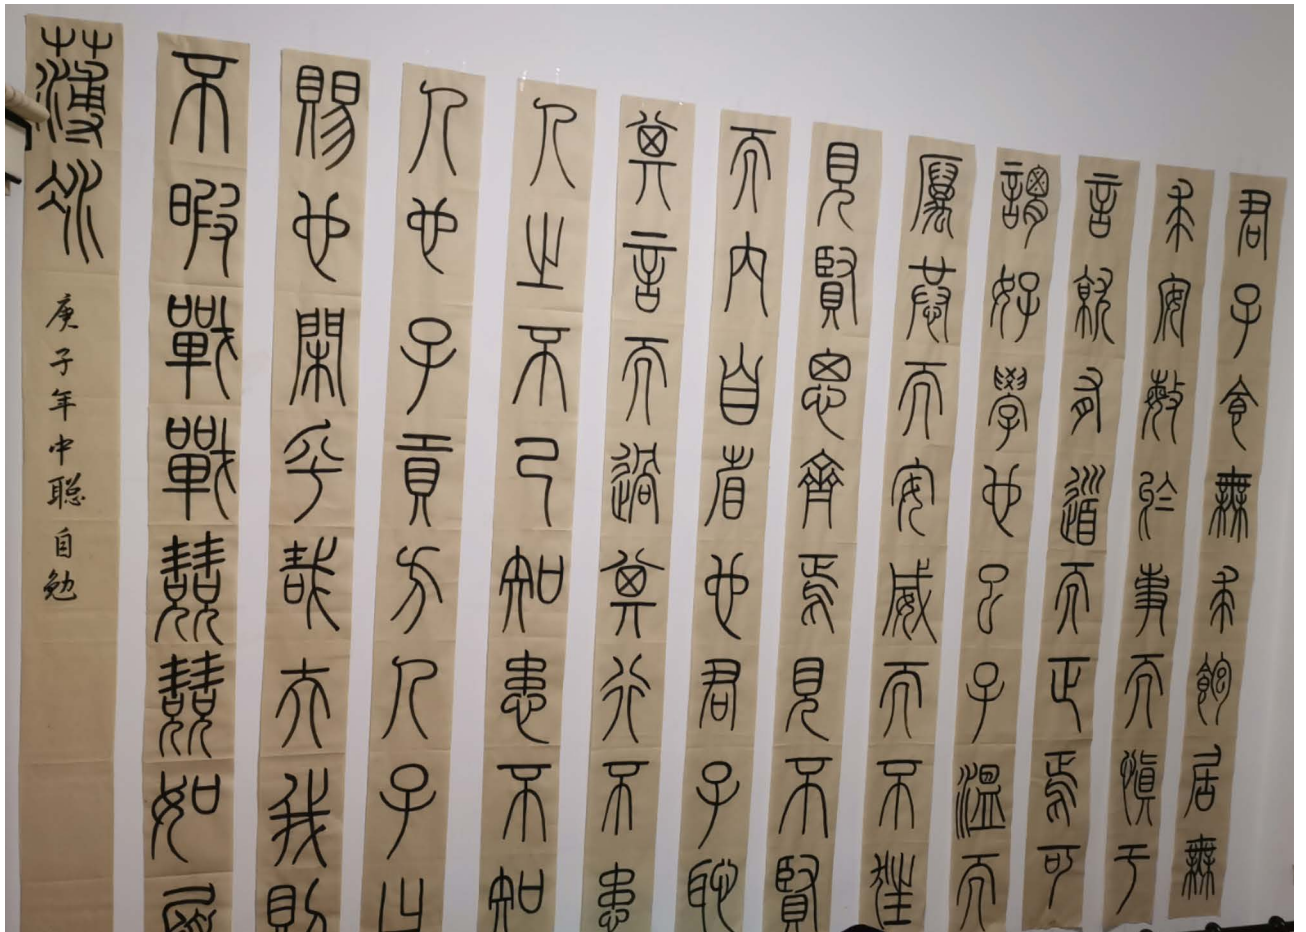 君子食無求飽居無
求安敏於事而慎于
言就有道而正焉可
謂好學也已子溫而
厲恭而安威而不猛
見賢思齊焉見不賢
而內自省也君子恥
其言而過其行不患
人之不己知患不知
人也子貢方人子曰
賜也閑乎哉夫我則
不暇戰戰兢兢如履
薄冰
庚子年中聪自勉